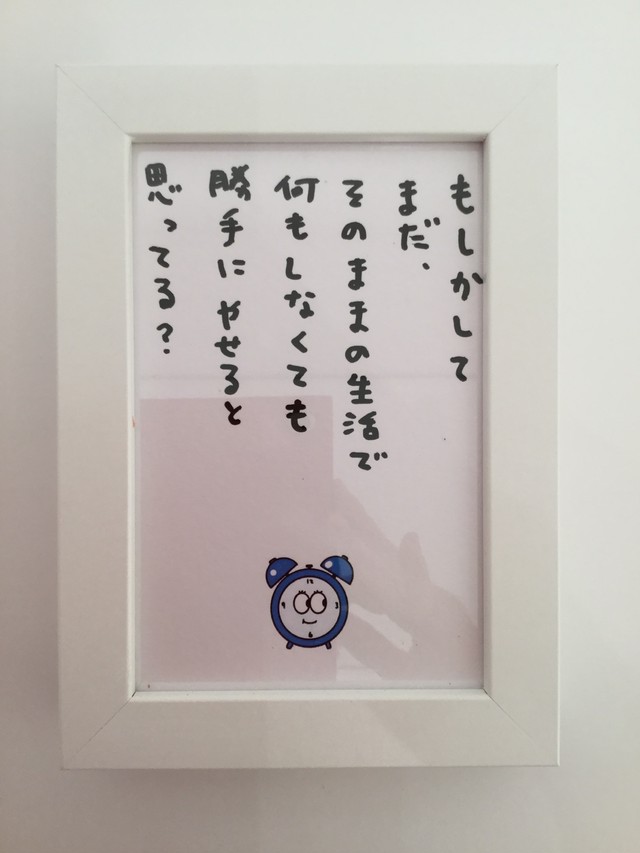 もしかして
まだ、
そのままの生活で
何もしなくても
勝手にやせると
思ってる?